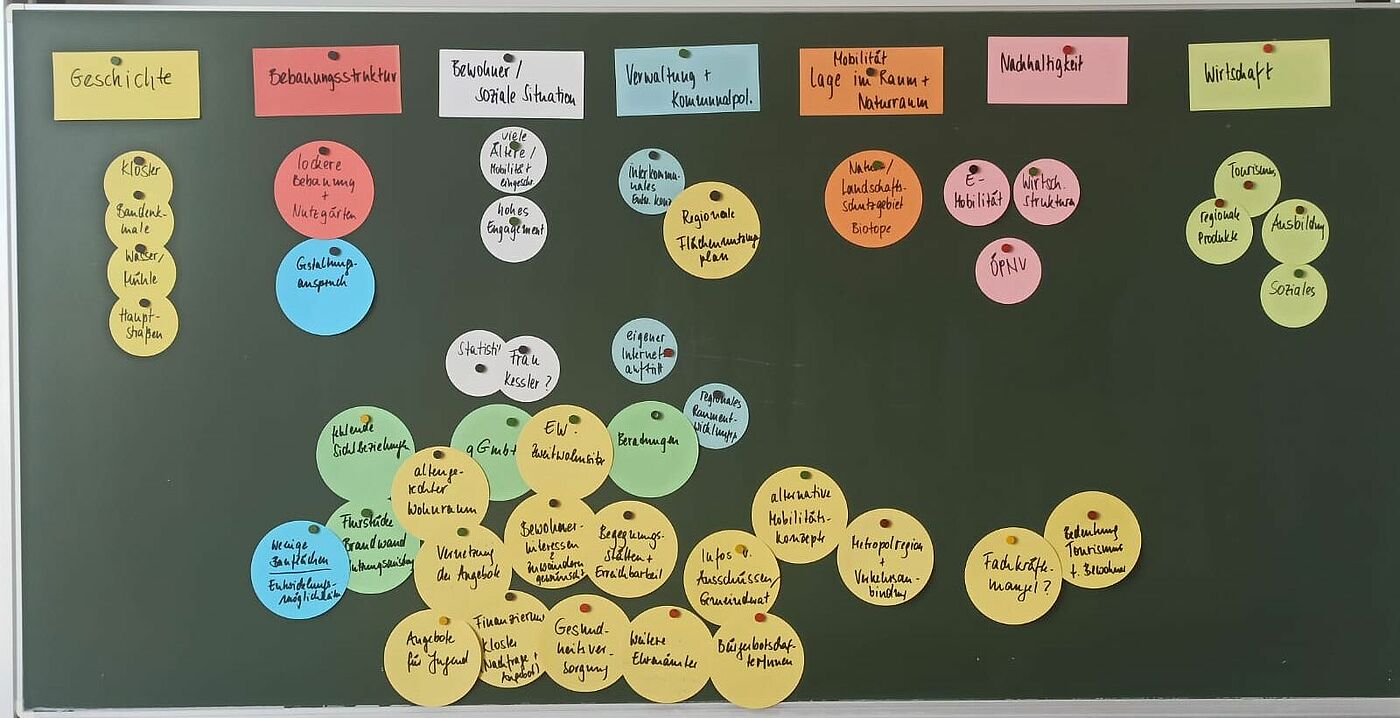 Geschichte
Bebauungsstruktur
Bewohner /
soziale Situation
Verwaltung +
Kommunalpol.
Mobilität
Lage im Raum +
Naturraum
Nachhaltigkeit
Wirtschaft
Klöster
Baudenk-
male
Wasser/
Mühle
Haupt-
straßen
lockere
Bebauung
+
Nutzgärten
Gestaltungs-
anspruch
viele
Ältere /
Mobilität
eingeschr.
hohes
Engagement
interkommu-
nales
Regionale
Flächennutzungs
plan
Natur /
Landschafts-
schutzgebiet
Biotope
E-
Mobilität
Wirtsch.
Strukturen
ÖPNV
Tourismus
regionale
Produkte
Ausbildung
Soziales
Statisti
Frau
Kessler ?
eigener
Internet
auftritt
regionales
Raument-
wicklungs
fehlende
Sichtbeziehungen
gGmbH
EW.
Zweitwohnsitz
Beratungen
altenge-
rechter
Wohnraum
Flurstücke
Brandwand
wenige
Bauflächen
Entwicklungs-
möglichkeiten
Vernetzung
der Angebote
Bewohner-
interessen
Zuwandern
gewünscht
Begegnungs-
stätten +
Erreichbarkeit
Infos v.
Ausschüssen/
Gemeinderat
alternative
Mobilitäts-
konzepte
Metropolregion
+
Verkehrsan-
bindung
Fachkräfte-
mangel ?
Bedeutung
Tourismus
f. Bewohner
Angebote
für Jugend
Finanzierung
Kloster
(Nachfrage +
Angebot)
Gesund-
heitsver-
sorgung
Weitere
Ehrenämter
Bürgerbotschaf-
terInnen